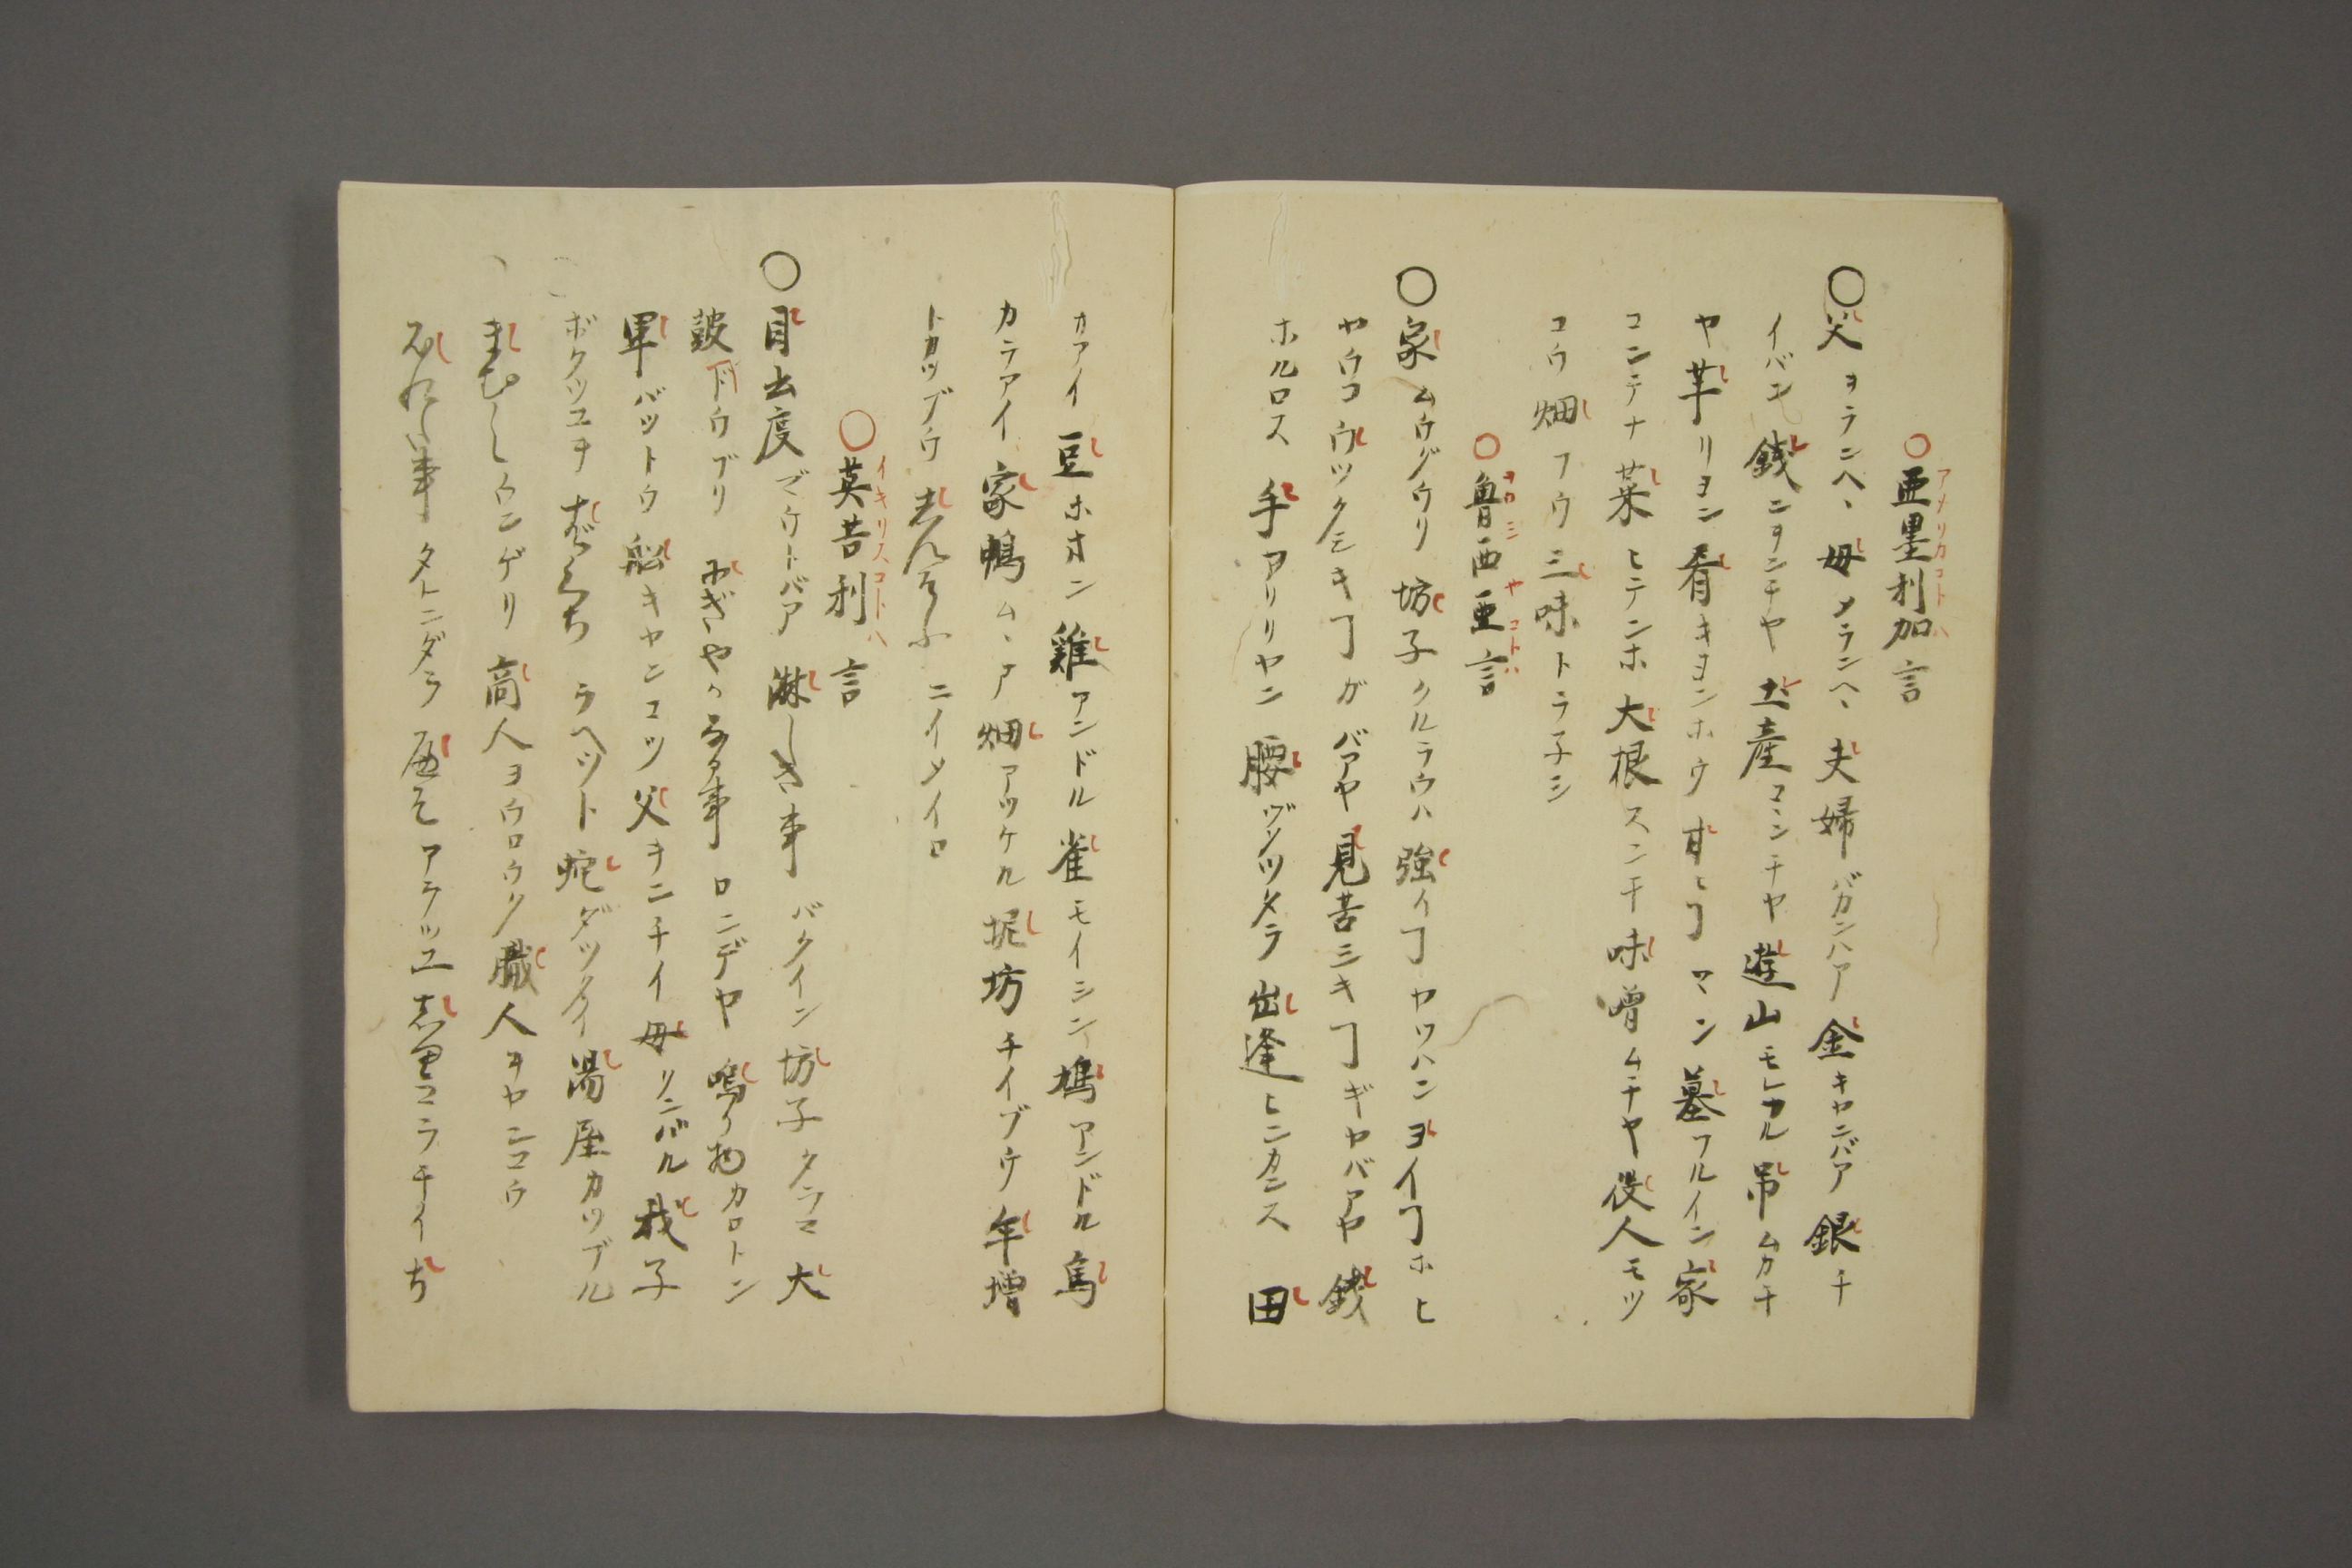 ○亜墨利加言
アメリカコトハ
○父ヲランヘヽ 母メランヘヽ 夫婦バガンハア 金キヤンバア 銀チ
イバヱ 銭ニヲンチヤ 土産コヽンチヤ 遊山モレカル 吊ムカチ
ヤ 芋リヨン 肴キヨンホウ 甘ヒヿマン 墓フルイン 家
コンテナ 菜ヒテンホ 大根スンチ 味噌ムチヤ 役人モツ
コウ 畑フウ 三味トラ子シ
○魯西亜言
ヲロシヤコトハ
○家ムウグウリ 坊子クルラウハ 強イヿヤツハン ヨイヿホヒ
ヤウコ ウツクシキヿガバアヤ 見苦シキヿギヤバアヤ 銭
ホルロス 手アリリヤン 腰ヅンツタラ 出逢ヒニカンス 田
カアイ 豆ホオン 雞アンドル 雀モイシン 鳩アンドル 鳥
カラアイ 家鴨ムヽア 畑アツケル 坭坊チイブウ 年増
トカツブウ ニイメイロ
○英吉利言
イキリスコトハ
○目出度ゴウトバア 淋しき事バクイン 坊子クラマ 大
鼓ドウブリ にぎやかなる事ロンデヤ 鳴り物カロトン
軍バツトウ 船キヤンコツ 父キンチイ 母リンバル 我子
ボクツユヲ ラヘツト 蛇ダツタイ 湯屋カツブル
まむしウンゲリ 商人ヨウロウク 職人ヲヤンコウ
事タトニダラ アラツユ コラチイ ち